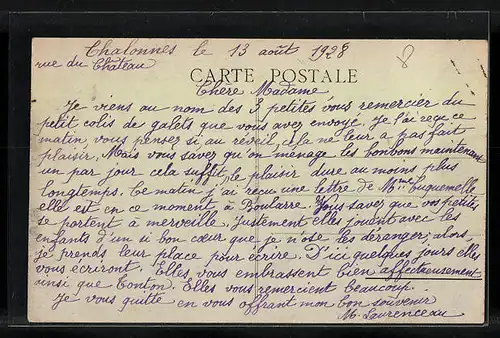 Chalonnes le 13 août 1928
rue du Château
CARTE POSTALE
Chère Madame
Je viens au nom des 3 petites vous remercier du
petit colis de galets que vous avez envoyé. Je l'ai reçu ce
matin, vous pensez si au réveil, cela ne leur a pas fait
plaisir. Mais vous savez qu'on ménage les bonbons maintenant
un par jour cela suffit, le plaisir dure au moins plus
longtemps. Ce matin j'ai reçu une lettre de Melle
elle est en ce moment à Boutarre. Vous savez que vos petites
se portent à merveille. Justement elles jouent avec les
enfants d'un si bon cœur que je n'ose les déranger; alors
je prends leur place pour écrire. D'ici quelques jours elles
vous écriront. Elles vous embrassent bien affectueusement
ainsi que Tonton. Elles vous remercient beaucoup.
Je vous quitte en vous offrant mon bon souvenir
M. Laurenceau